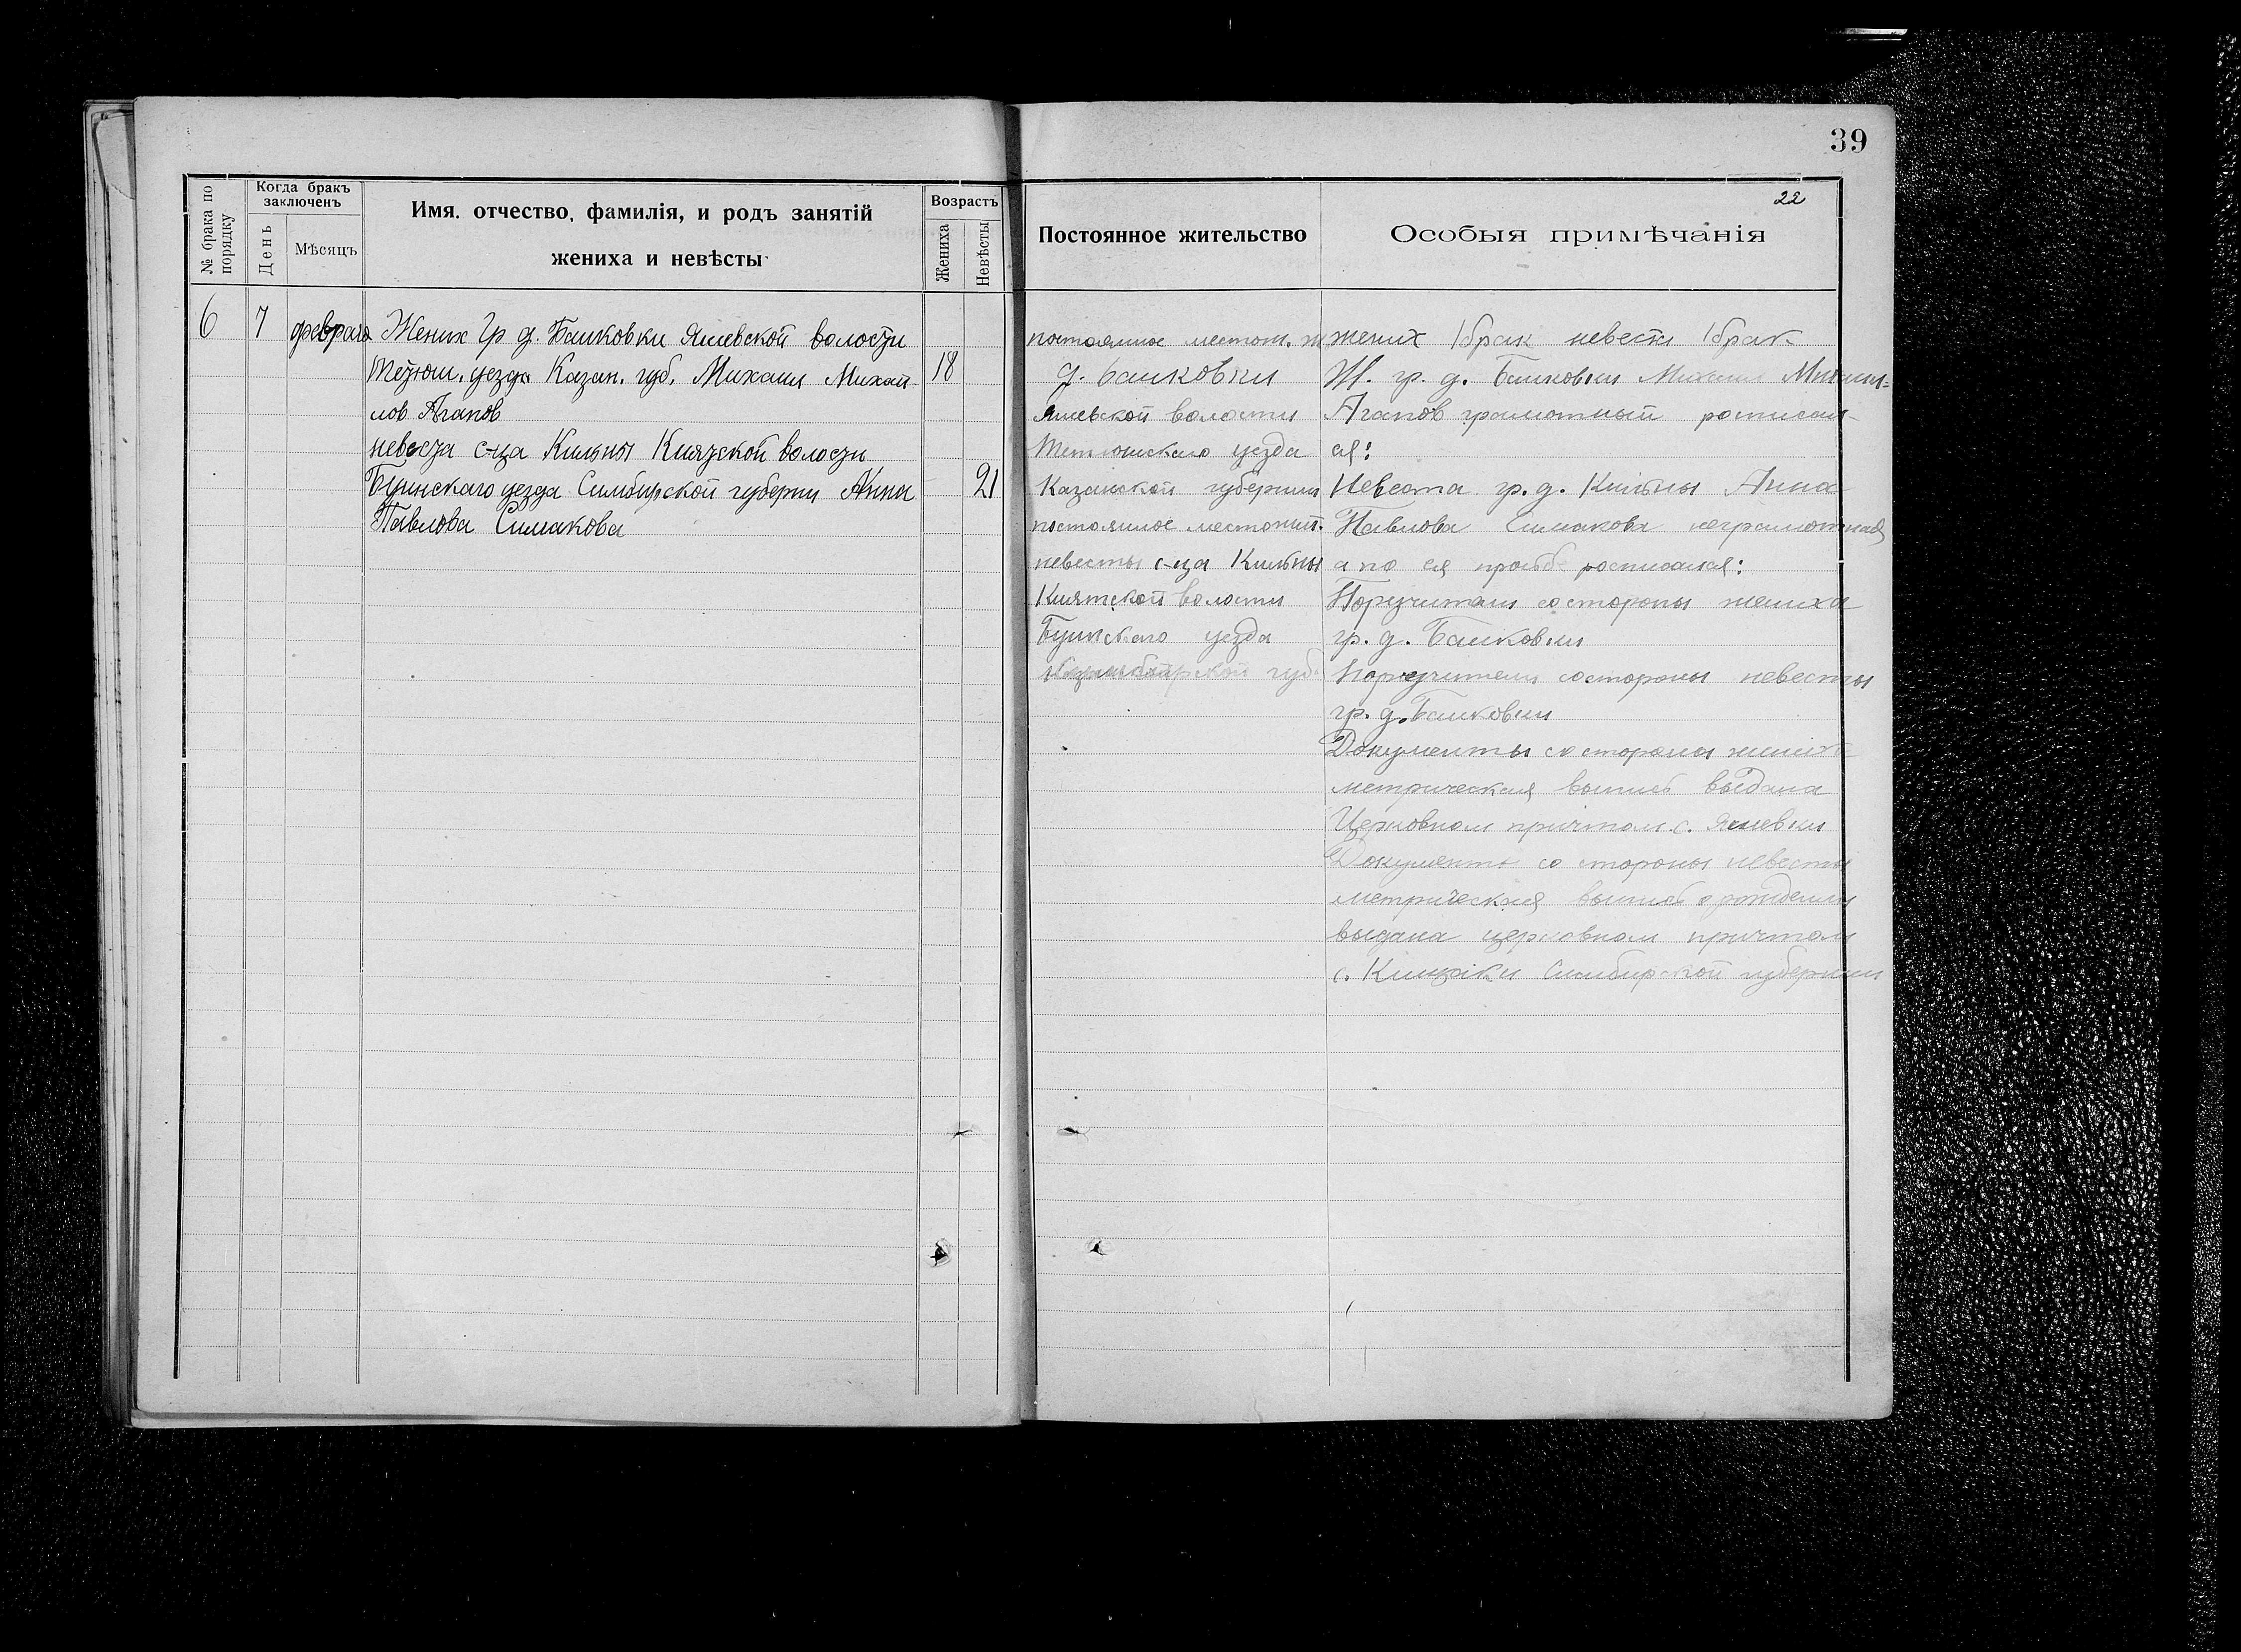 39
22
№ брака по порядку
Когда бракъ заключенъ
День
Мѣсяцъ
Имя, отчество, фамилія, и родъ занятій
жениха и невѣсты
Возрастъ
Жениха
Невѣсты
Постоянное жительство
Особыя примѣчанія
6 7 февраля Жених Гр д. Башковки Яшевской волости
Тетюш. уезда Казан. губ. Михаил Михай- 18
лов Агапов
невеста с-ца Кильны Киятской волости
Буинскаго уезда Симбирской губерни Анна 21
Павлова Симакова
постоянное местож. ж
д. Башковки
Яшевской волости
Тетюшскаго уезда
Казанской губернии
постоянное местожит.
невесты с-ца Кильны
Киятской волости
Буинскаго уезда
губ
жених 1 брак невесты 1 брак
Ж. гр. д. Башковки Михаил Михаил-
Агапов грамотный росписал-
ся:
Невеста гр. д. Кильны Анна
Павлова Симакова неграмотная
а по ея прозьб росписался:
Поручители со стороны жениха
гр. д. Башковки
Поручители со стороны невесты
гр. д. Башковки
Документы со стороны жениха
метрическая выпись выдана
Церковном причтом с. Яшевки
Документы со стороны невесты
метрическая выпись о рождении
выдана церковном причтом
с. Симбирской губернии